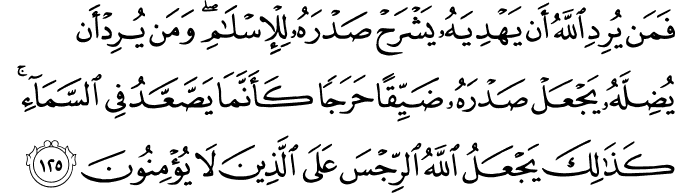 فَمَن يُرِدِ ٱللَّهُ أَن يَهْدِيَهُۥ يَشْرَحْ صَدْرَهُۥ لِلْإِسْلَٰمِ ۖ وَمَن يُرِدْ أَن
يُضِلَّهُۥ يَجْعَلْ صَدْرَهُۥ ضَيِّقًا حَرَجًا كَأَنَّمَا يَصَّعَّدُ فِى ٱلسَّمَآءِ ۚ
كَذَٰلِكَ يَجْعَلُ ٱللَّهُ ٱلرِّجْسَ عَلَى ٱلَّذِينَ لَا يُؤْمِنُونَ ١٢٥